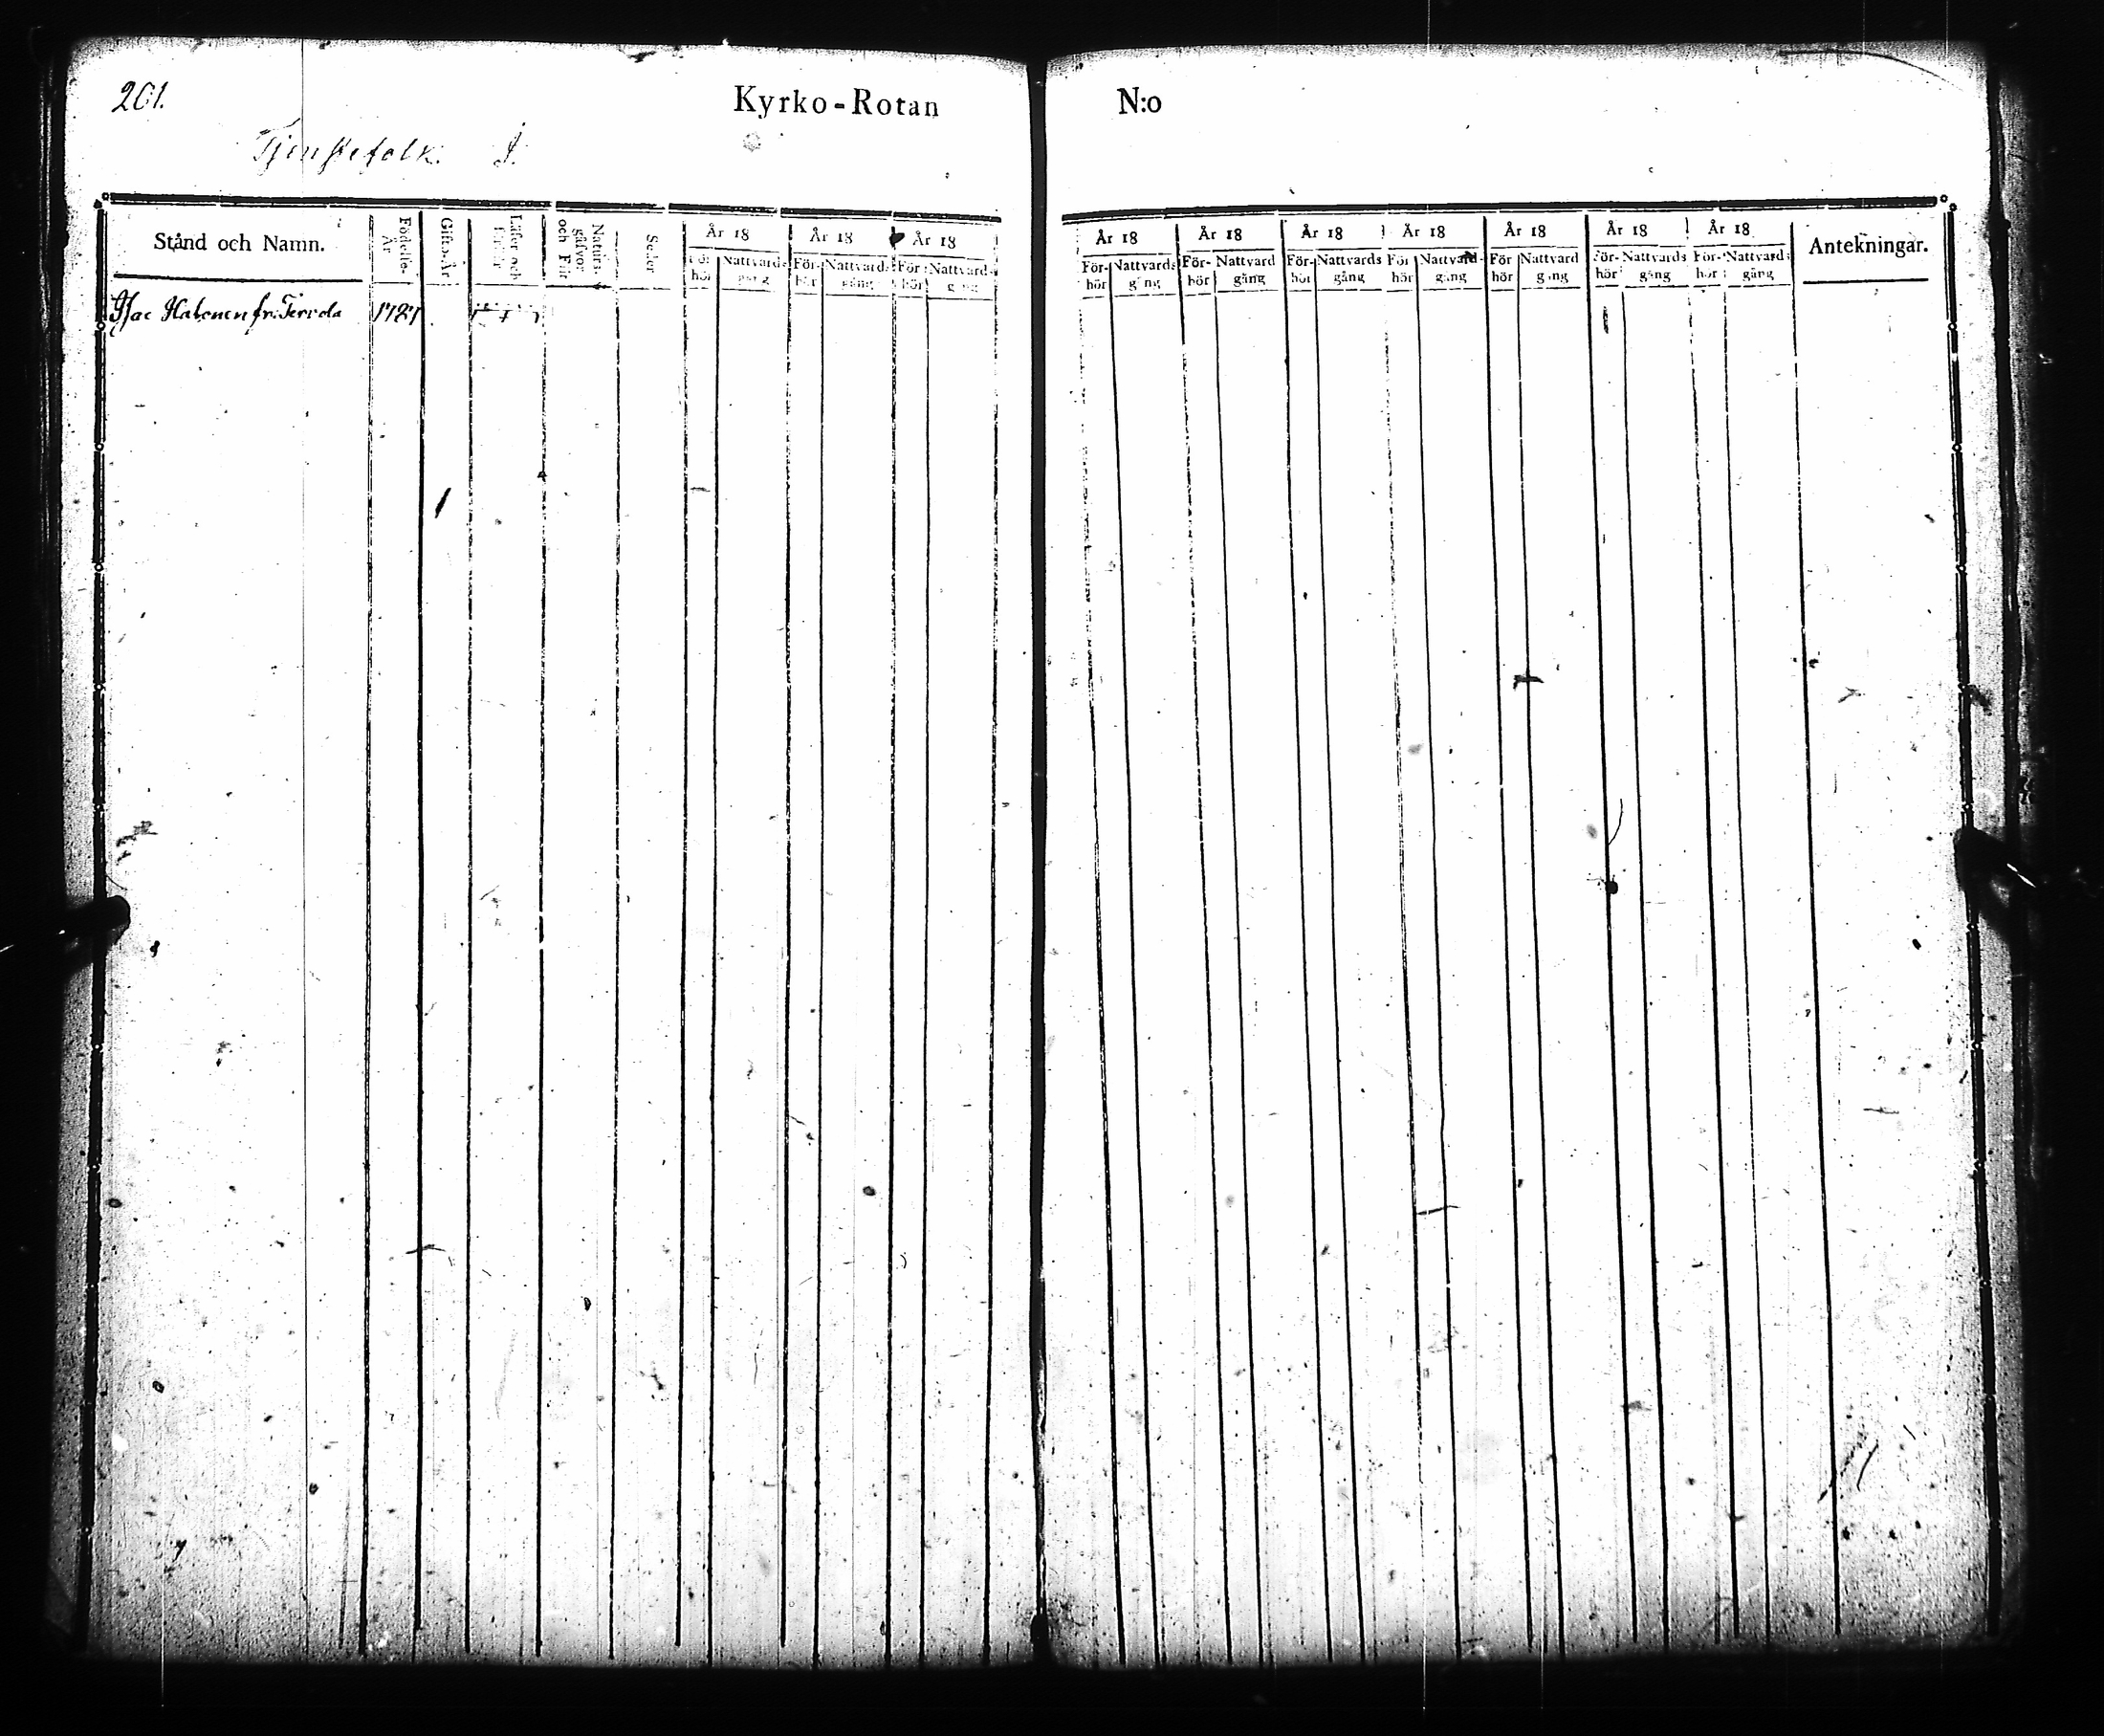 201.
Kyrko-Rotan
N:o
Tjenstefolk. I.
Stånd och Namn.
Födelse-År
Gifts-År
Läser och
Naturs-gåfvor och Flit
Seder
År 18
År 18
År 18
För-hör Nattvards-gång
För-hör Nattvards-gång
För-hör Nattvards-gång
År 18
År 18
År 18
År 18
År 18
År 18
År 18
Antekningar.
För-hör Nattvards-gång
För-hör Nattvard gång
För-hör Nattvards gång
För hör Nattvard-gång
För hör Nattvard gång
För-hör Nattvards gång
För-hör Nattvards gång
Isac Halonen fr.